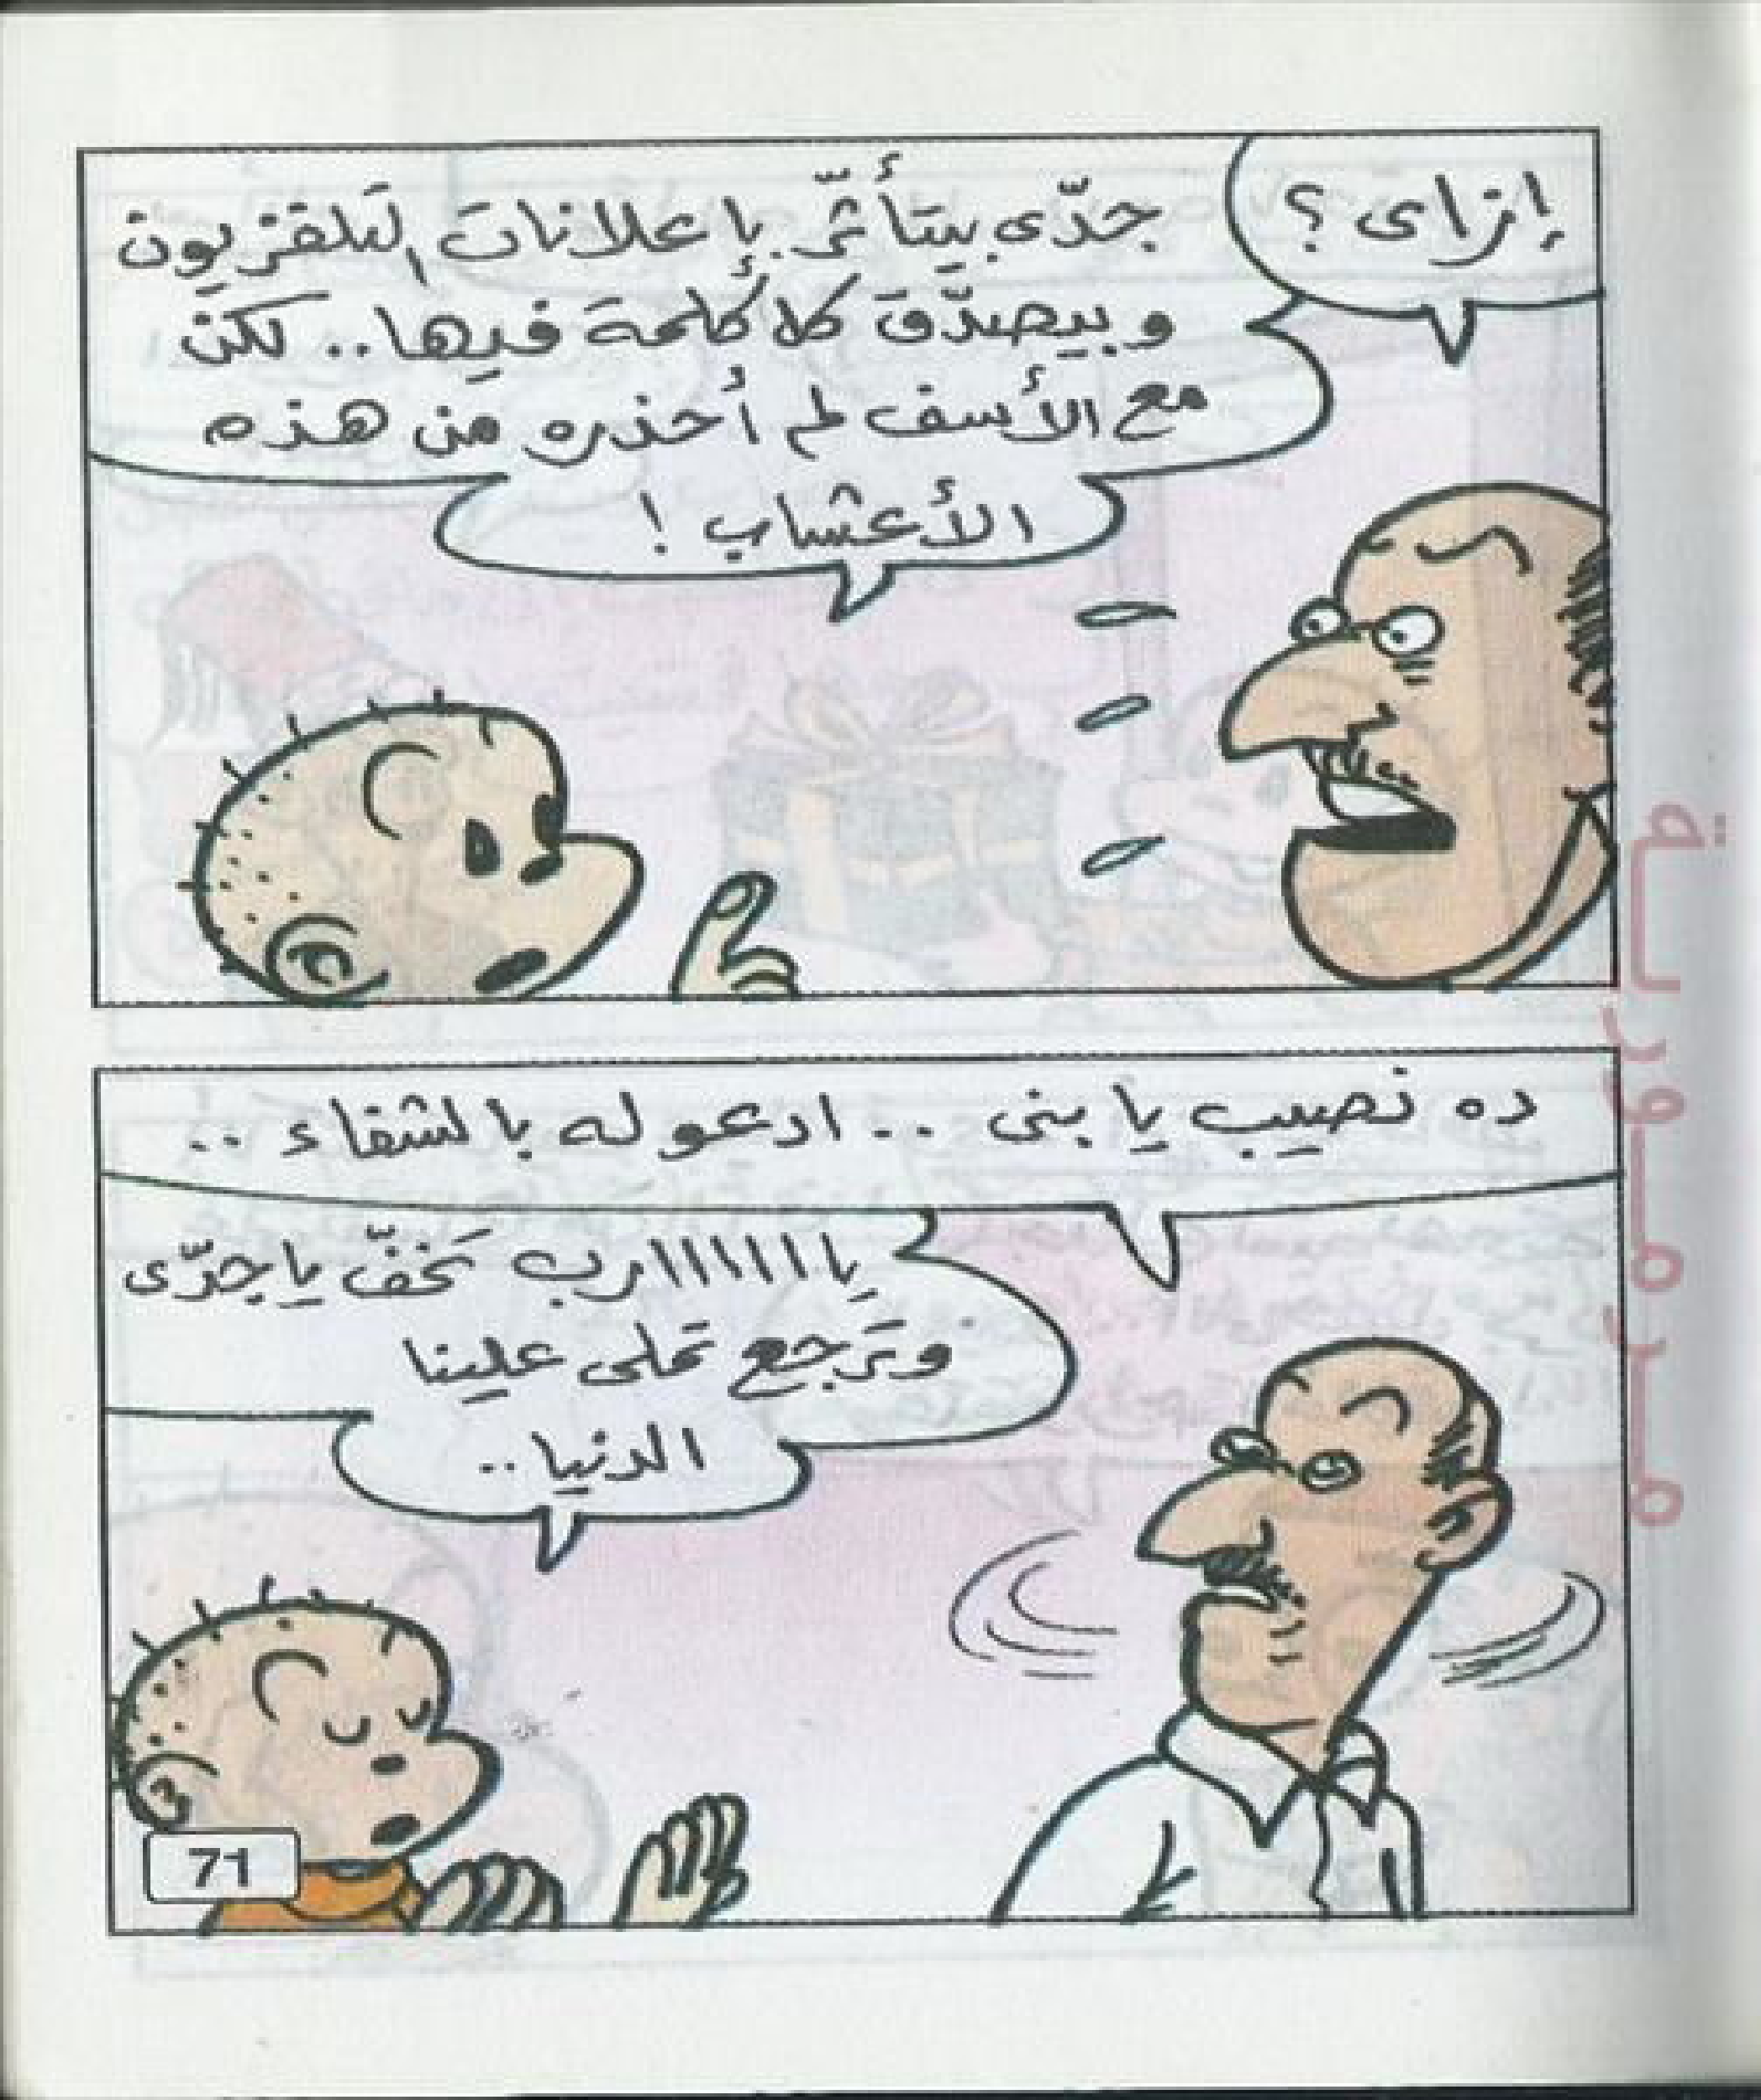 إزاى ؟
جدّى بيتأثّر بإعلانات التلفزيون
وبيصدّق كل كلمة فيها.. لكن
مع الأسف لم أحذره من هذه
الأعشاب !
ده نصيب يا بنى .. ادعو له بالشفاء ..
يااااااارب تخفّ يا جدّى
وترجع تملى علينا
الدنيا..
71